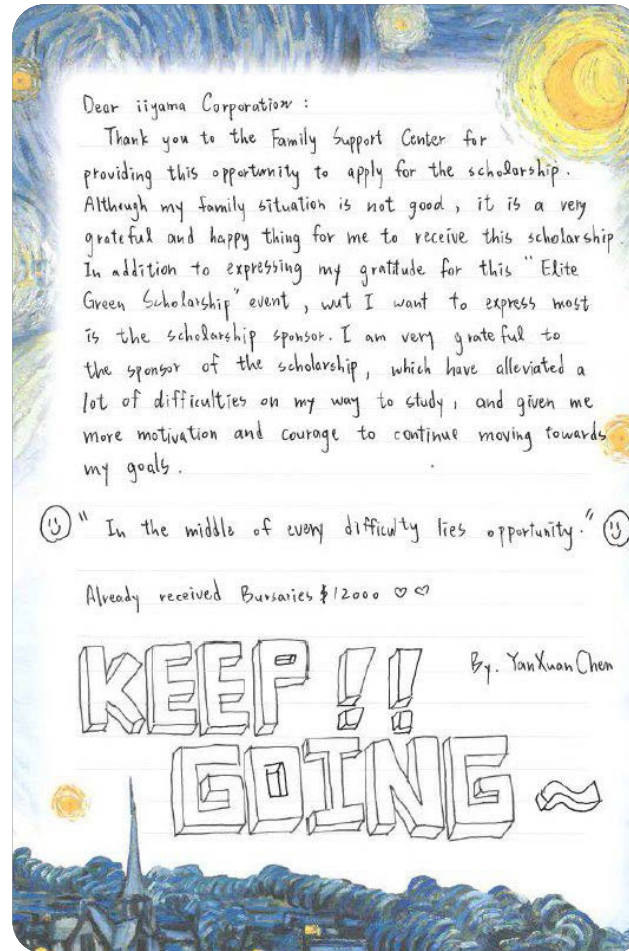 Dear iiyama Corporation :
Thank you to the Family Support Center for
providing this opportunity to apply for the scholarship.
Although my family situation is not good, it is a very
grateful and happy thing for me to receive this scholarship.
In addition to expressing my gratitude for this "Elite
Green Scholarship" event, wut I want to express most
is the scholarship sponsor. I am very grateful to
the sponsor of the scholarship, which have alleviated a
lot of difficulties on my way to study, and given me
more motivation and courage to continue moving towards
my goals.
"In the middle of every difficulty lies opportunity."
Already received Bursaries $12000 ♡♡
By. YanXuan Chen
KEEP!!
GOING~